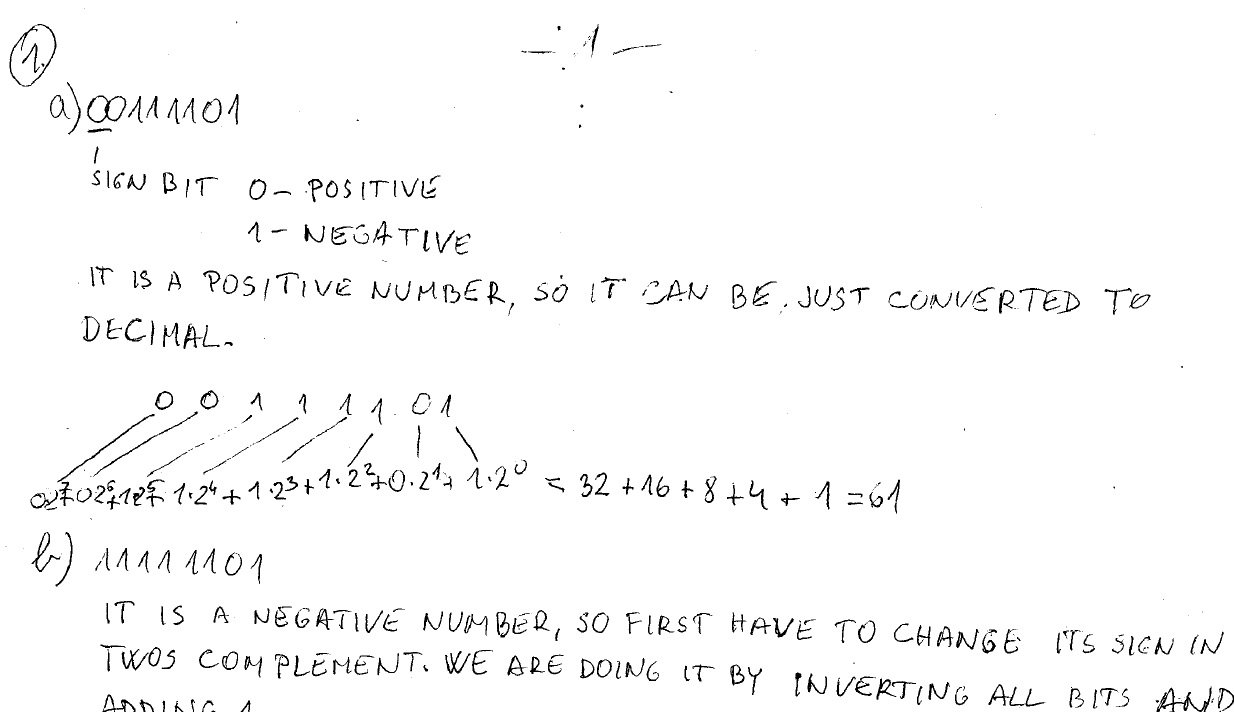 — 1 —
1.
a) 00111101
SIGN BIT 0 - POSITIVE
1 - NEGATIVE
IT IS A POSITIVE NUMBER, SO IT CAN BE JUST CONVERTED TO
DECIMAL.
0 0 1 1 1 1 0 1
0·2⁷+0·2⁶+1·2⁵+1·2⁴+1·2³+1·2²+0·2¹+1·2⁰ = 32+16+8+4+1=61
b) 11111101
IT IS A NEGATIVE NUMBER, SO FIRST HAVE TO CHANGE ITS SIGN IN
TWOS COMPLEMENT. WE ARE DOING IT BY INVERTING ALL BITS AND
ADDING 1